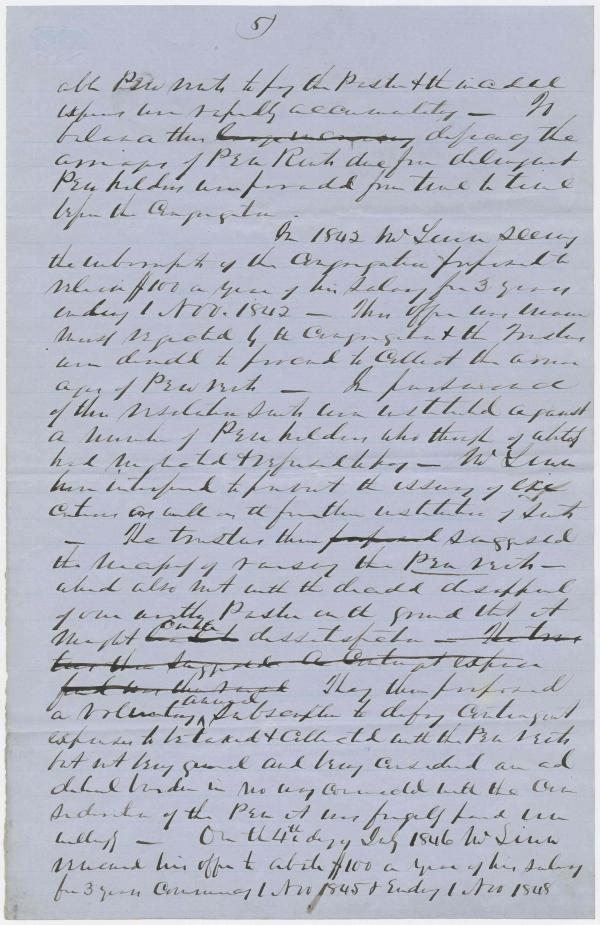 5)
able Pew rents to pay the Pastor & the incidental
expenses were rapidly accumulating — To
balance this large increasing deficiency the
arrearages of Pew Rents due from delinquent
Pew holders were paraded from time to time
before the Congregation.
In 1842 Mr Linn seeing
the embarrassments of the Congregation proposed to
relinquish $100 a year of his salary for 3 years
ending 1 Nov. 1842 — This offer was
most rejected by the Congregation & the Trustees
were directed to proceed to collect the arrear
ages of Pew rents — In pursuance
of this resolution suits were instituted against
a number of Pew holders who though of ability
had neglected & refused to pay — Mr Linn
here interposed to prevent the issuing of exe
cutions as well as the further institution of suits
— The trustees then proposed suggested
the necessity of raising the Pew rents —
which also met with the decided disapproval
of our worthy Pastor on the ground that it
might create dissatisfaction — The trus
tees then suggested a Contingent expense
fund was then raised They then proposed
a voluntary annual subscription to defray Contingent
expenses to be taxed & collected with the Pew rents
but not being general and being considered an ad
ditional burden in no way connected with the Con
sideration of the Pew it was frugally paid un
willingly — On the 4th day of July 1846 Mr Linn
renewed his offer to abate $100 a year of his salary
for 3 years Commencing 1 Nov 1845 & Ending 1 Nov 1848